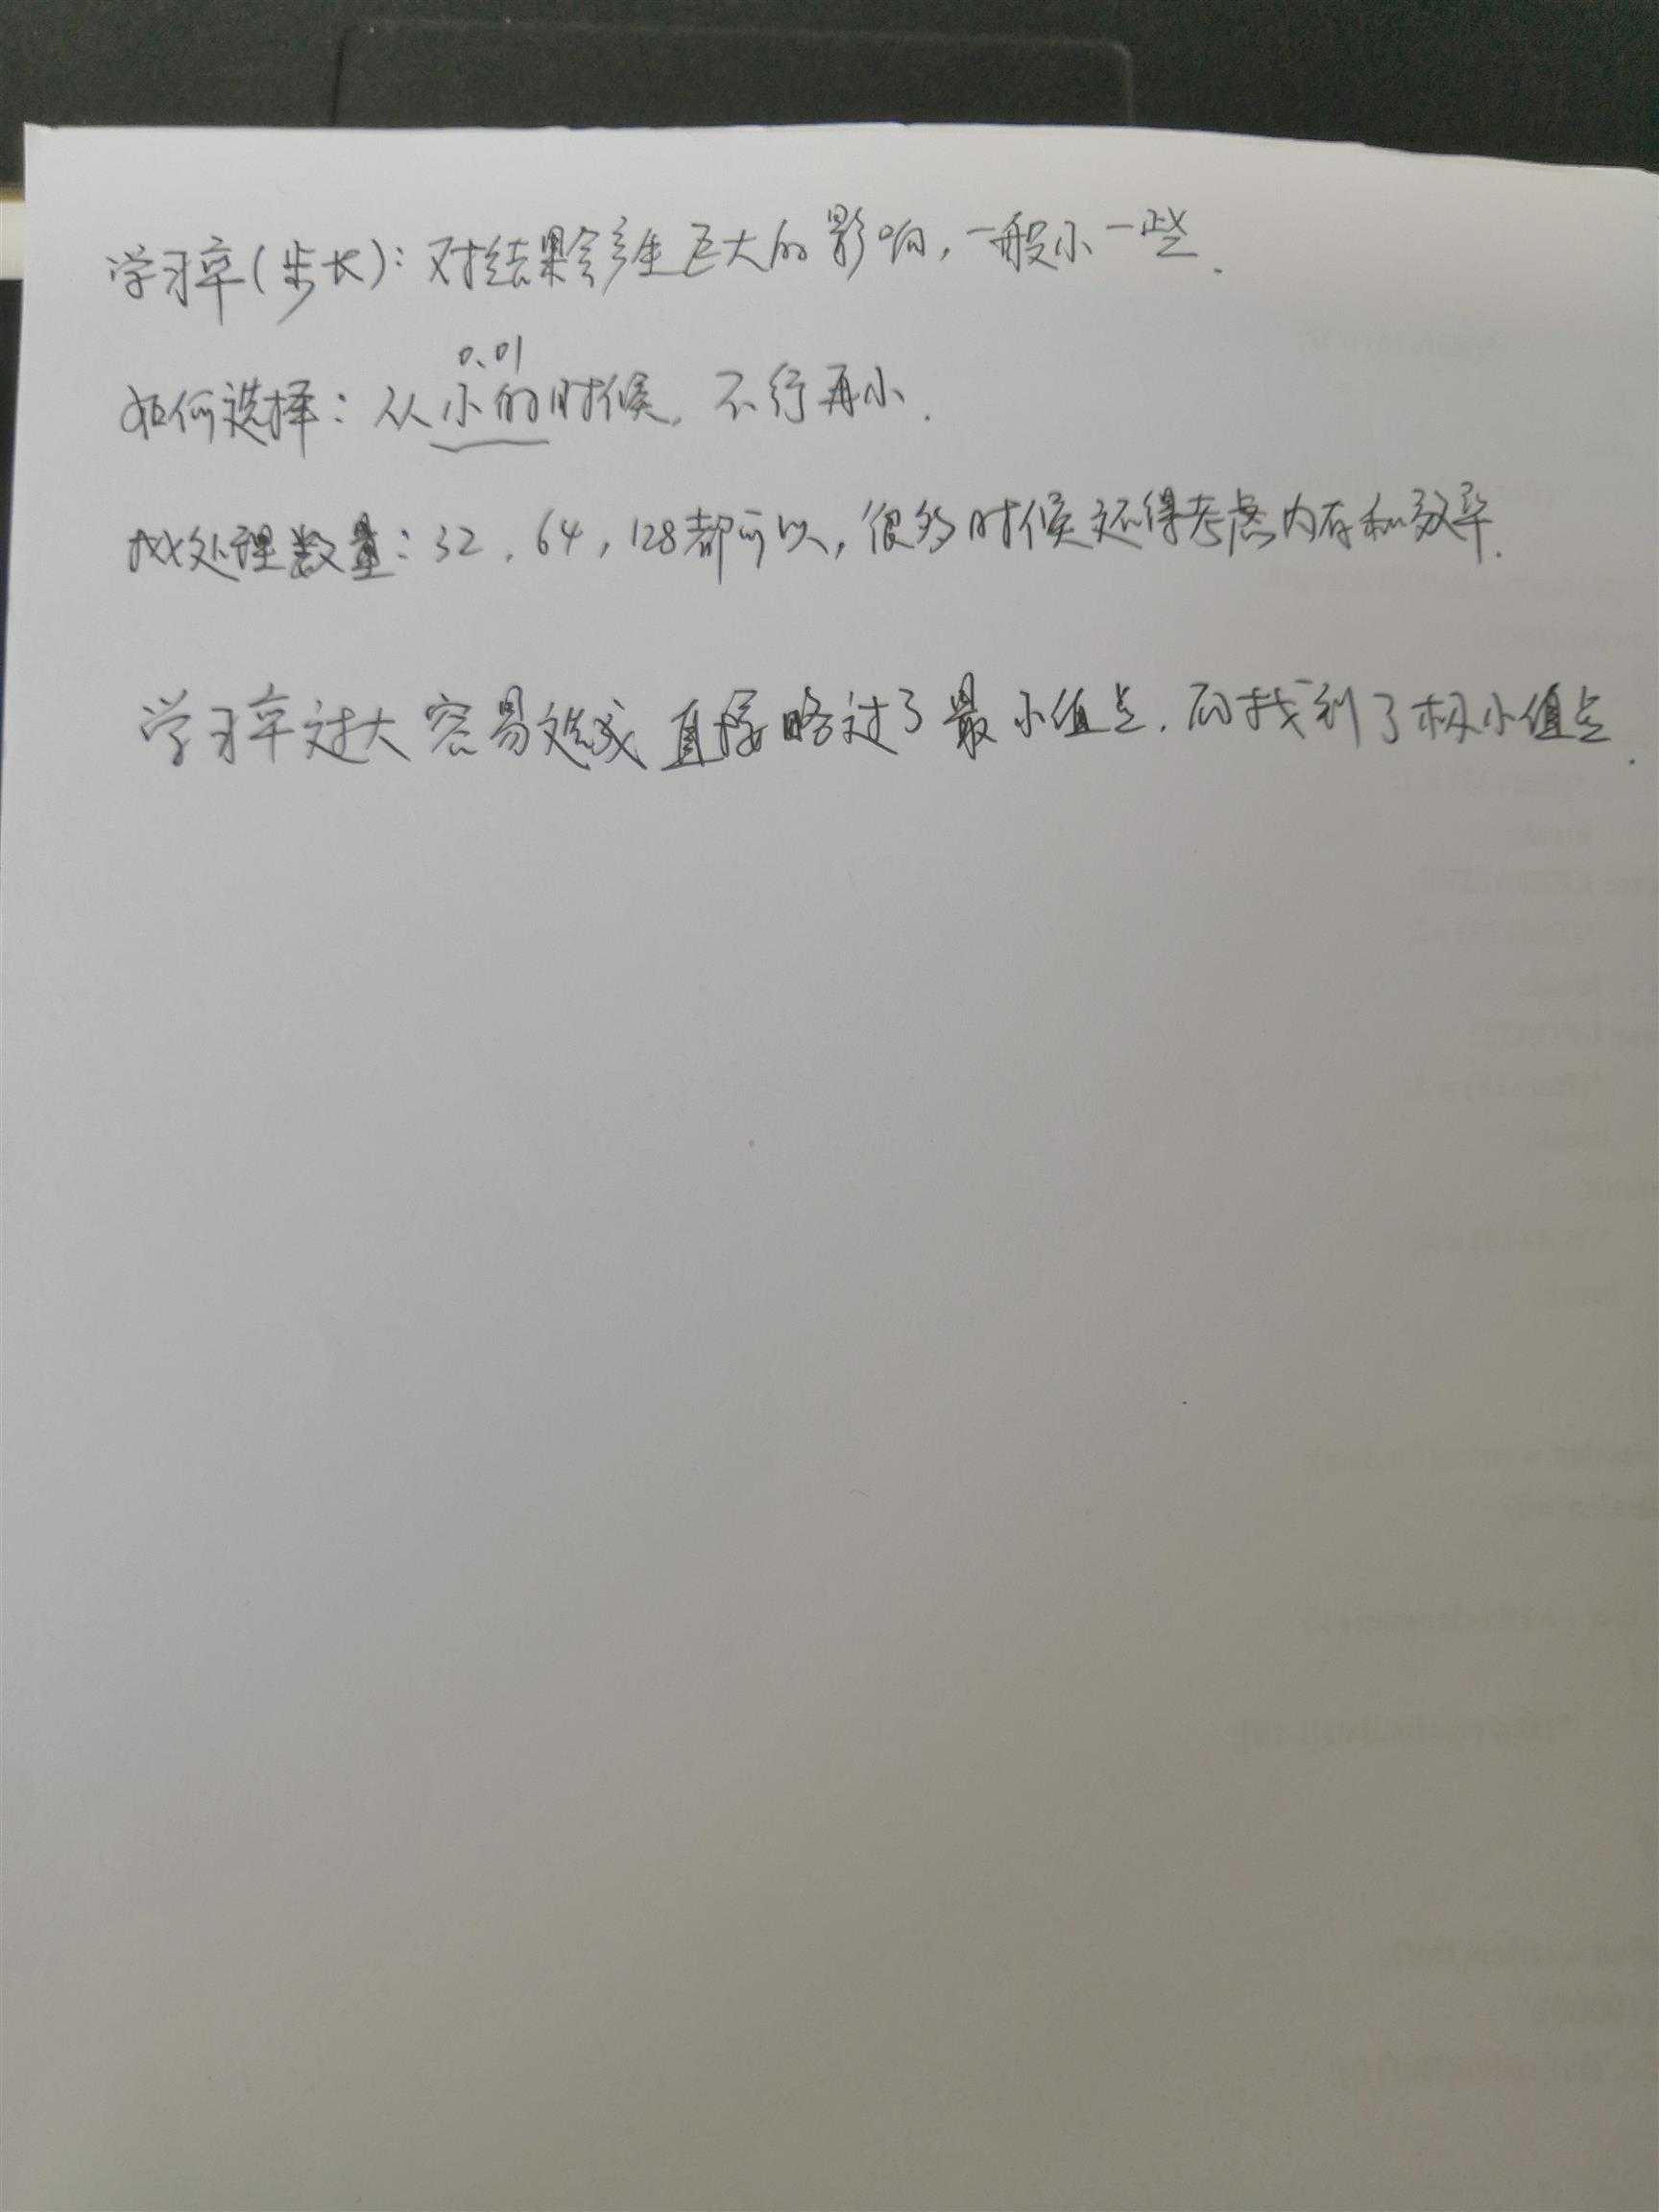 学习率(步长)：对结果会产生巨大的影响，一般小一些.
0.01
如何选择：从小的时候，不行再小.
批处理数量：32，64，128都可以，很多时候还得考虑内存和效率.
学习率过大容易造成直接略过了最小值点，而找到了极小值点.